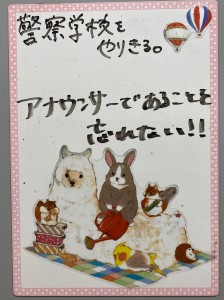 警察学校を
やりきる。
アナウンサーであることを
忘れない!!